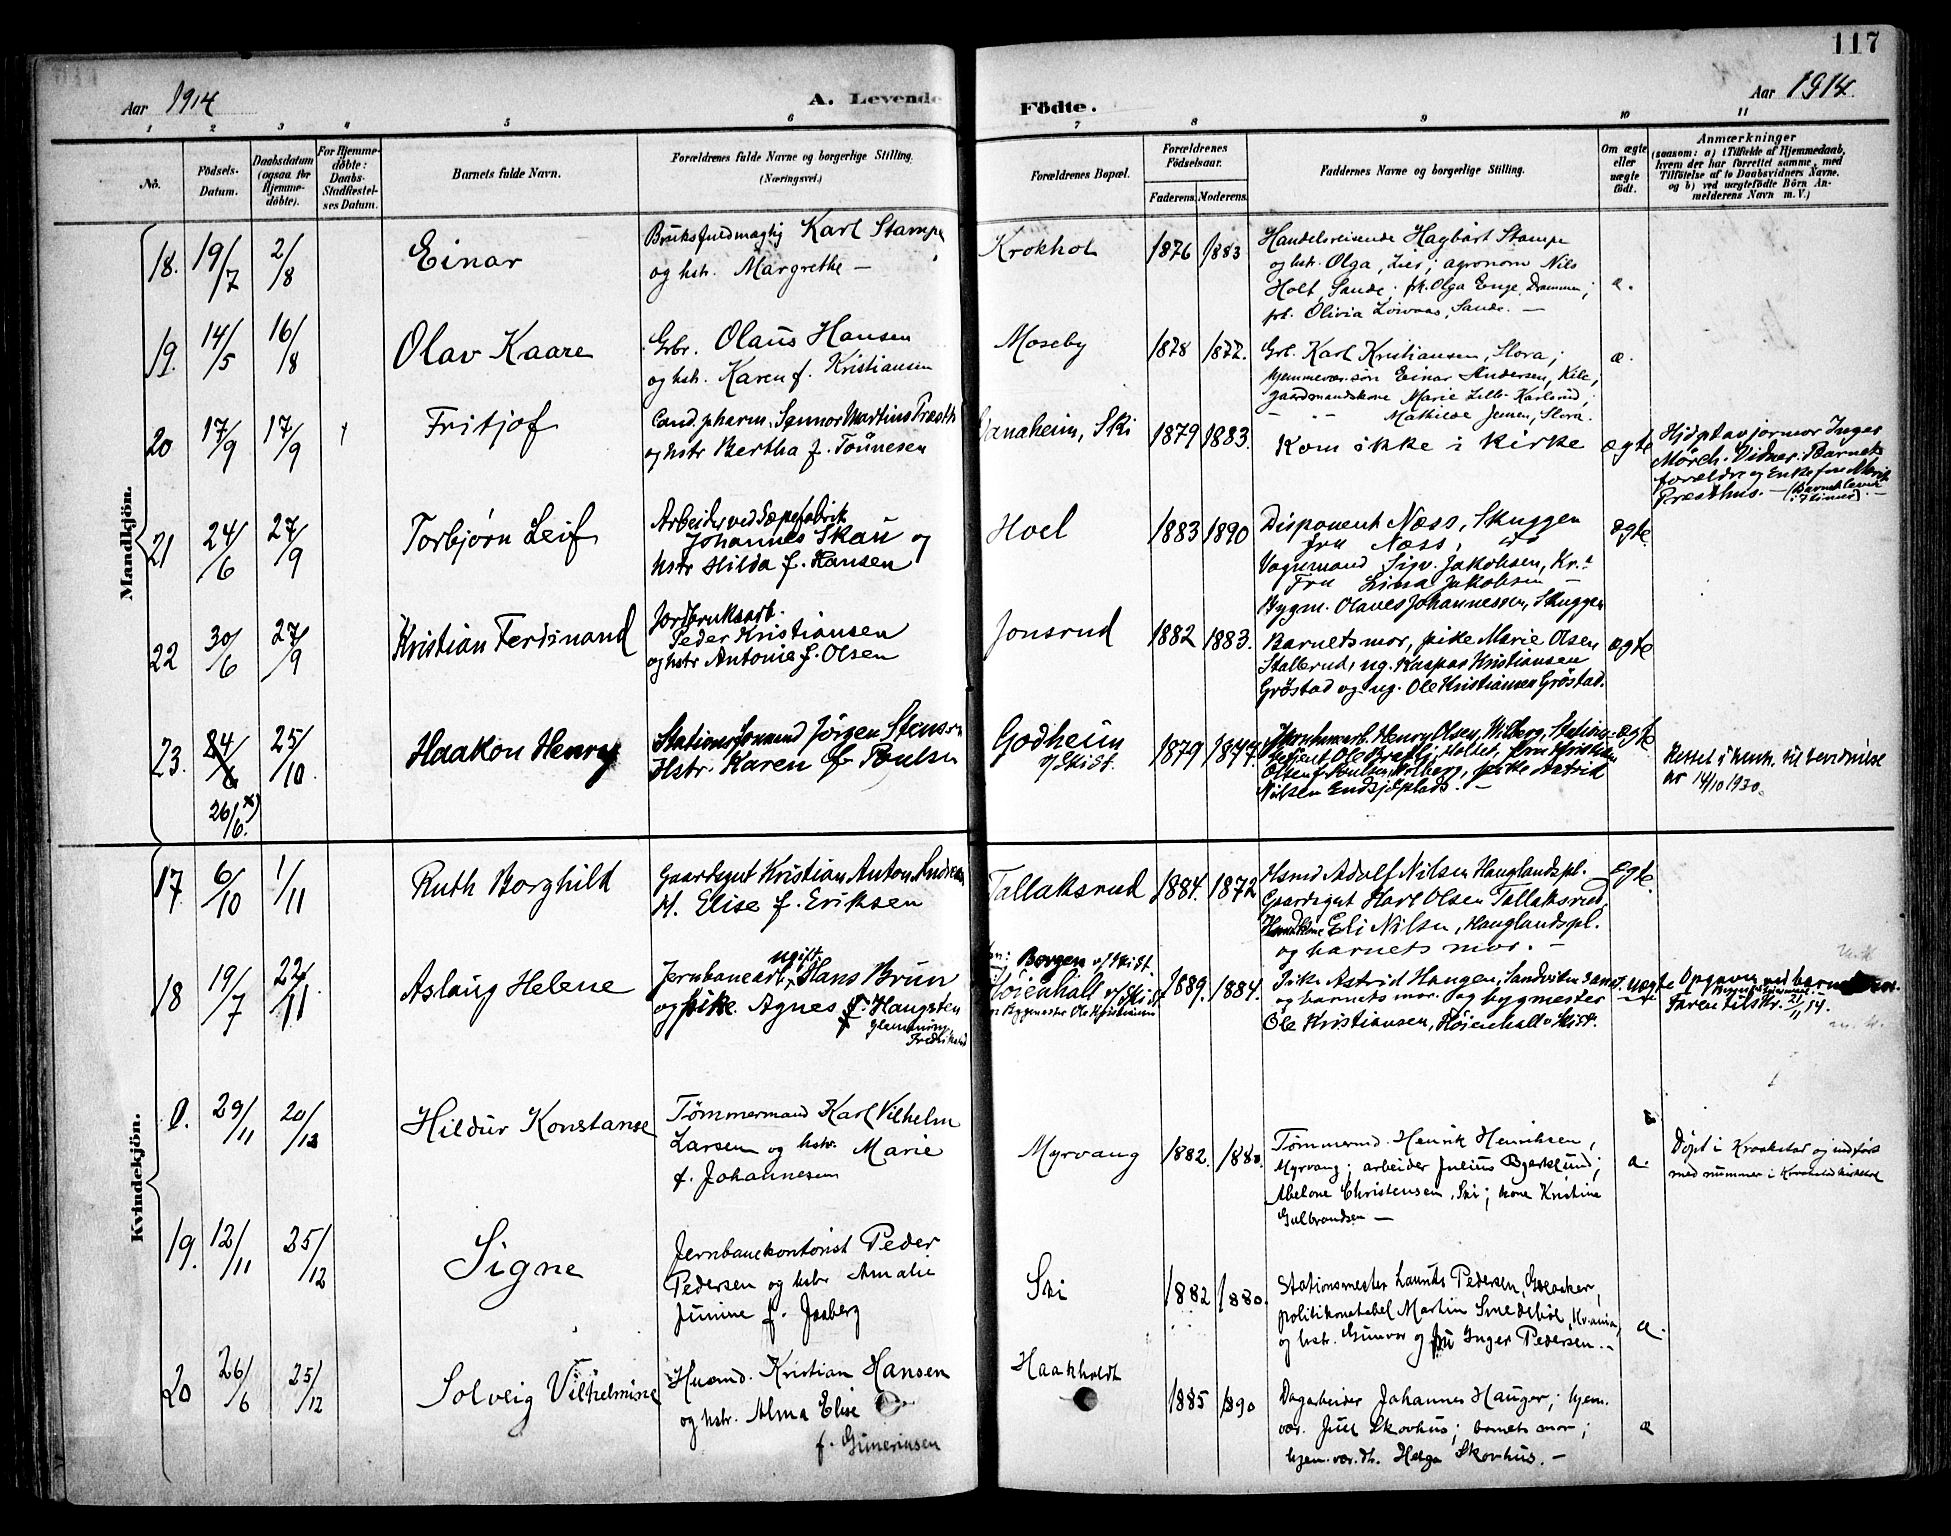 117
Aar 1914
A. Levende Födte.
Aar 1914.
1 2 3 4 5 6 7 8 9 10 11
No.
Födsels-
Datum.
Daabsdatum
(ogsaa for
Hjemme-
döbte).
For Hjemme-
döbte:
Daabs-
Stadfæstel-
ses Datum.
Barnets fulde Navn.
Forældrenes fulde Navne og borgerlige Stilling.
(Næringsvei.)
Forældrenes Bopæl.
Forældrenes
Födselsaar.
Faderens. Moderens.
Faddernes Navne og borgerlige Stilling.
Om ægte
eller
uægte
födt.
Anmærkninger
(saasom: a) i Tilfælde af Hjemmedaab,
hvem der har forrettet samme, med
Tilföielse af to Daabsvidners Navne,
og b) ved uægtefödte Börn An-
melderens Navn m. V.)
Mandkjön.
18. 19/7 2/8 Einar
Bruksfuldmægtig Karl Stampe
og hstr. Margrethe —
Krokhol 1876 1883
Handelsreisende Hagbart Stampe
og hstr. Olga, Lier; agronom Nils
Holt, Sande; frk. Olga Enge, Drammen;
frk. Olivia Sande. —
19. 14/5 16/8 Olav Kaare
Gbr. Olaus Hansen
og hstr. Karen f. Kristiansen
Moseby 1878 1877.
Karl Kristiansen, Slora;
hjemmevær. søn Einar Andersen,
gaardmandskone Marie
Mathilde Jensen, Slora.
æ.
20 17/9 17/9 Fritjof
Cand. pharm. Martins
og hstr Bertha f. Tönnesen
Ski 1879 1883.
Kom ikke i kirke
ægte
Hjdpt av jormor Inger
Mörch. Vidner: Barnets
forældre og Enkefru
Præsthus. —
21 24/6 27/9 Torbjörn Leif
Arbeider ved Sæpefabrik
Johannes Skau og
hstr Hilda f. Hansen
Hoel 1883 1890
Disponent Næss, Skuggen
fru Næss, do
Sigv. Jakobsen, Kr.a
Fru Jakobsen —
Bygm. Olaves Johannessen, Skuggen
ægte.
22 30/6 27/9 Kristian Ferdinand
Jordbruksarb.
Peder Kristiansen
og hstr Antonie f. Olsen
Jonsrud 1882 1883.
Barnets mor, pike Marie Olsen
Stallerud, ug. Kaspar Kristiansen
Gröstad og ug. Ole Kristiansen Gröstad.
ægte
23. 24/6 25/10 Haakon Henry
26/6. x)
Stationsformand Jörgen Stensrn
Hstr. Karen f. Poulsn
Godheim
v/ Ski st. 1879
Jernbanearb. Henry Olsen,
pike Astrid
Nilsen
ægte
Rettet i henh. til bevidnelse
av 14/10 1930.
Kvindekjön.
17 6/10 1/11 Ruth Borghild
Gaardsgut Kristian Anton
H. Elise f. Eriksen
Tallaksrud 1884. 1872
Hsmd Adolf Nilsen Hauglandspl.
Gaardsgut Karl Olsen Tallaksrud,
Eli Nilsn, Hauglandspl.
og barnets mor. —
Egte.
18 19/7 22/11. Aslaug Helene
ugift
Jernbanearb. Hans Brun
og pike Agnes f. Haugsten
Borgen v/ Ski st.
Höienhall v/ Ski st.
Bygmester Ole Kristiansen
1889. 1884.
Pike Astrid Haugen,
og barnets mor. og bygmester
Ole Kristiansen, Höienhall v Ski st.
uægte
Opgaven ved
Faren tilskr. 21/11 14.
0. 29/11 20/12 Hildur Konstanse
Tømmermand Karl Vilhelm
Larsen og hstr. Marie
f. Johannesen
Myrvang 1882.
Tømmermd. Henrik Henriksen,
Myrvang; arbeider Julius Bjerklund;
Abelone Christensen, Ski; kone Kristine
Gulbrandsen —
Döpt i Kraakstad og indført
med nummer i
19. 12/11 25/12 Signe
Jernbanekontorist Peder
Pedersen og hstr Amalie
Junine f.
Ski 1882 1880.
Stationsmester Laurits Pedersen,
politikonstabel Martin
og hstr. Gunvor og fru Inger Pedersen. —
æ.
20 26/6 25/12 Solveig Vilhelmine
Kristian Hansen
og hstr. Alma Elise
f. Gunerius­en
Haakholdt
1885 1890
Dagarbeider Johannes Hauger; hjem.
vær. Juel Skovhus; barnets mor;
hjem. vær. dt. Helga Skovhus. —
æ